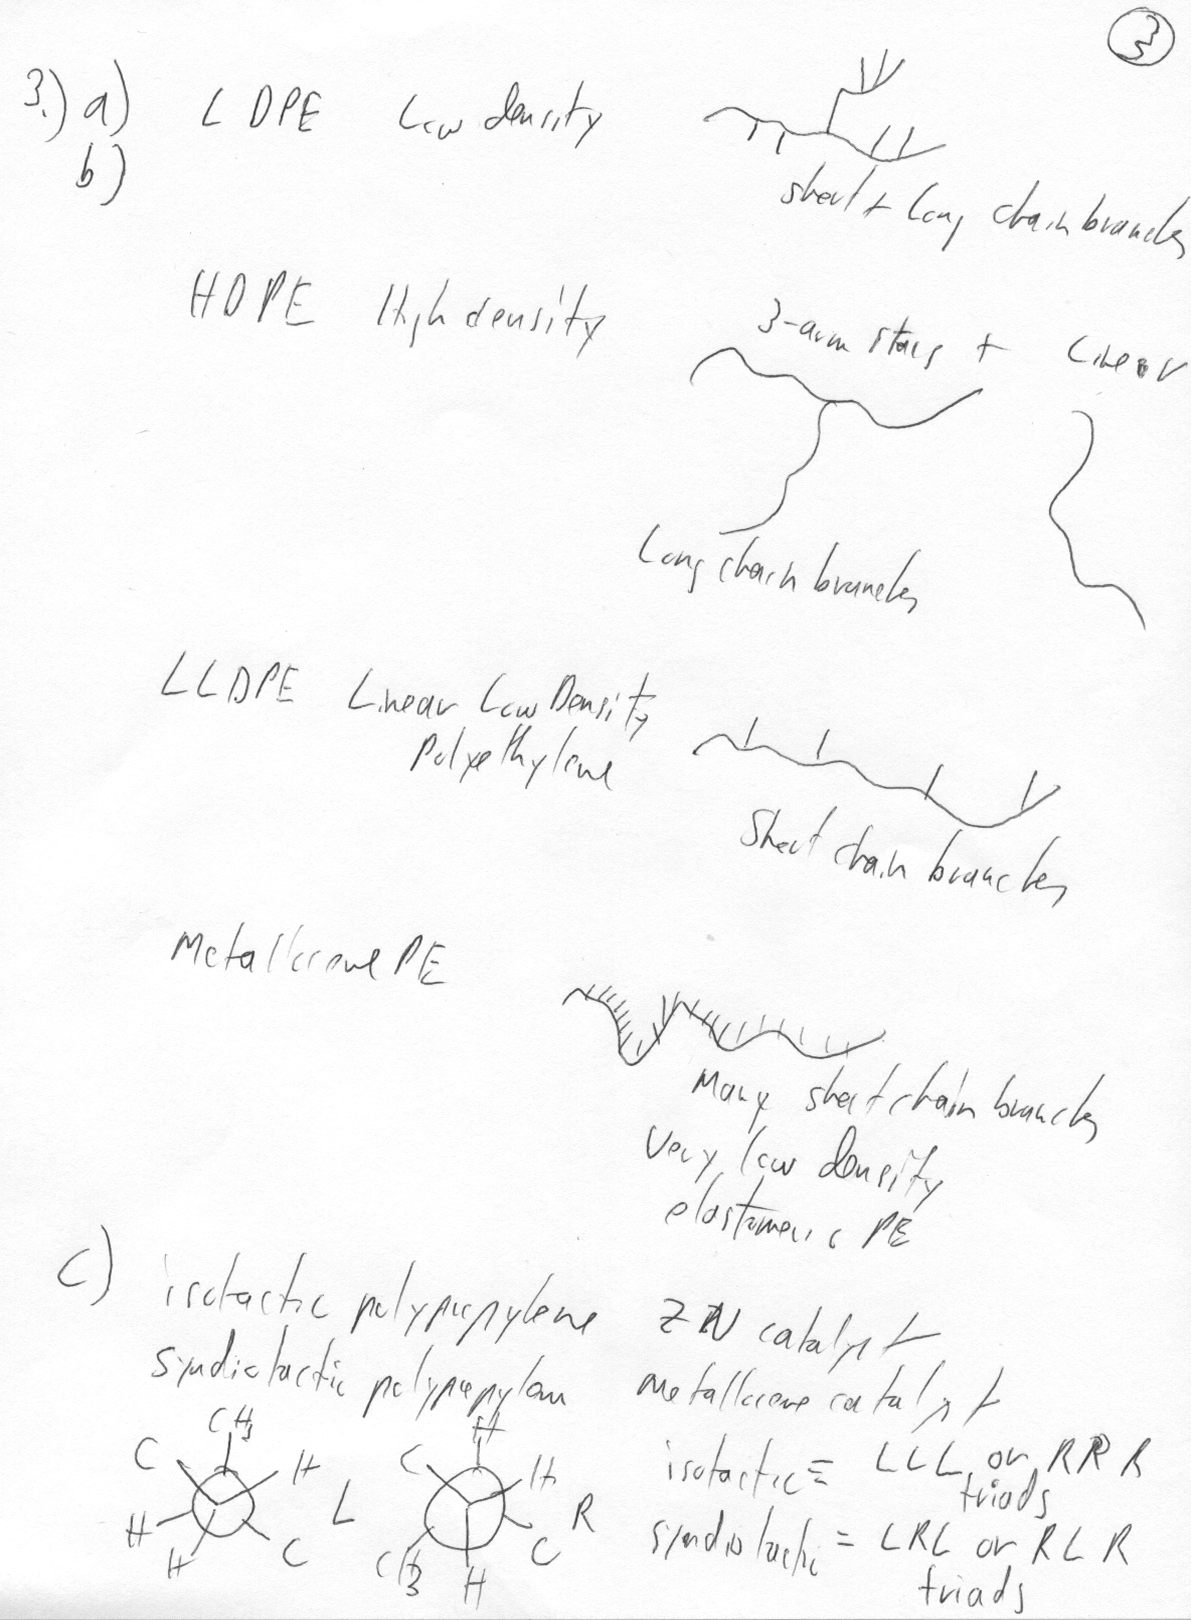 3
3.) a) LDPE Low density
b)
short + Long chain branches
HDPE High density
3-arm stars + Linear
Long chain branches
LLDPE Linear Low Density
Polyethylene
Short chain branches
Metallocene PE
Many short chain branches
Very low density
elastomeric PE
c) isotactic polypropylene ZN catalyst
syndiotactic polypropylene metallocene catalyst
CH3 H
C H C H
L R
H H C CH3 H C
isotactic = LLL or RRR
triads
syndiotactic = LRL or RLR
triads